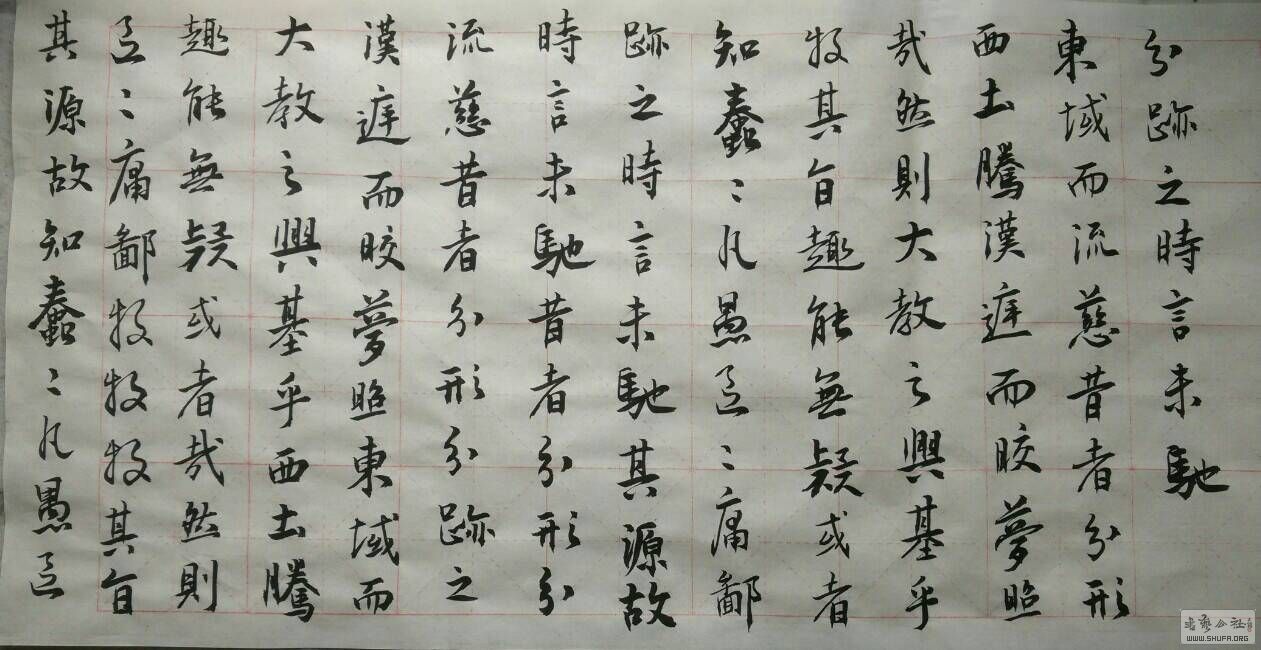 分跡之時言未馳
東域而流慈昔者分形
西土騰漢庭而晈夢照
哉然則大教之興基乎
投其旨趣能無疑或者
知蠢〻凡愚區〻庸鄙
跡之時言未馳其源故
時言未馳昔者分形分
流慈昔者分形分跡之
漢庭而晈夢照東域而
大教之興基乎西土騰
趣能無疑或者哉然則
區〻庸鄙投投投其旨
其源故知蠢〻凡愚區
书艺公社
WWW.SHUFA.ORG